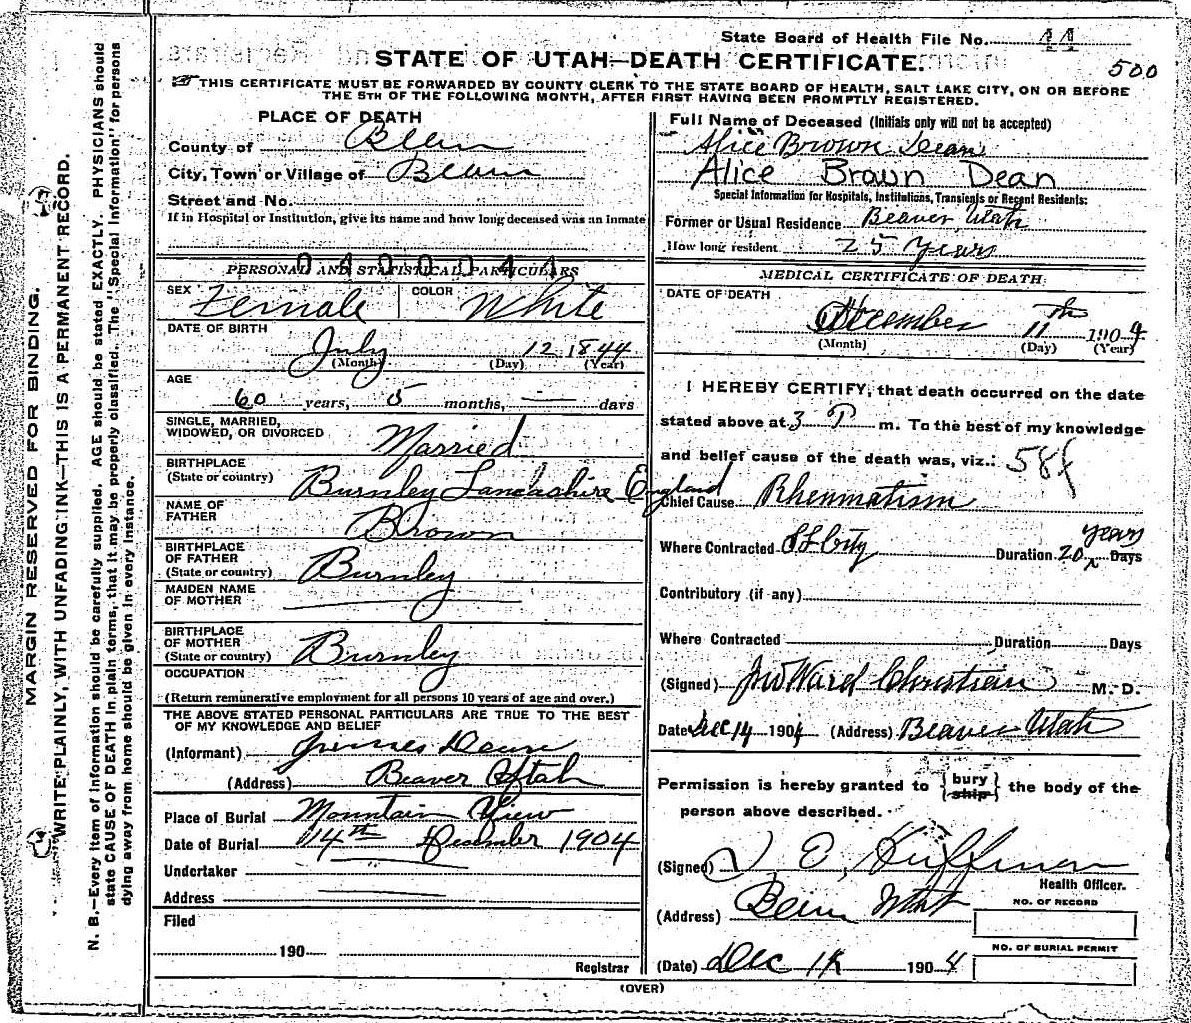 State Board of Health File No. 44
STATE OF UTAH—DEATH CERTIFICATE.
500
THIS CERTIFICATE MUST BE FORWARDED BY COUNTY CLERK TO THE STATE BOARD OF HEALTH, SALT LAKE CITY, ON OR BEFORE
THE 5TH OF THE FOLLOWING MONTH, AFTER FIRST HAVING BEEN PROMPTLY REGISTERED.
MARGIN RESERVED FOR BINDING.
WRITE PLAINLY, WITH UNFADING INK—THIS IS A PERMANENT RECORD.
N. B.—Every item of information should be carefully supplied. AGE should be stated EXACTLY. PHYSICIANS should
state CAUSE OF DEATH in plain terms, that it may be properly classified. The "Special Information" for persons
dying away from home should be given in every instance.
PLACE OF DEATH
County of
City, Town or Village of
Street and No.
If in Hospital or Institution, give its name and how long deceased was an Inmate
0400044
PERSONAL AND STATISTICAL PARTICULARS
SEX Female COLOR White
DATE OF BIRTH
July 12 1844
(Month) (Day) (Year)
AGE
60 years, 5 months, — days
SINGLE, MARRIED,
WIDOWED, OR DIVORCED Married
BIRTHPLACE
(State or country) Burnley Lancashire England
NAME OF
FATHER Brown
BIRTHPLACE
OF FATHER
(State or country) Burnley
MAIDEN NAME
OF MOTHER
BIRTHPLACE
OF MOTHER
(State or country) Burnley
OCCUPATION
(Return remunerative employment for all persons 10 years of age and over.)
THE ABOVE STATED PERSONAL PARTICULARS ARE TRUE TO THE BEST
OF MY KNOWLEDGE AND BELIEF
(Informant)
(Address) Beaver Utah
Place of Burial Mountain View
Date of Burial 14th December 1904
Undertaker
Address
Filed
190
Registrar
Full Name of Deceased (Initials only will not be accepted)
Alice Brown Dean
Alice Brown Dean
Special Information for Hospitals, Institutions, Transients or Recent Residents:
Former or Usual Residence Beaver Utah
How long resident 25 Years
MEDICAL CERTIFICATE OF DEATH
DATE OF DEATH
December 11th 1904
(Month) (Day) (Year)
I HEREBY CERTIFY, that death occurred on the date
stated above at 3 P m. To the best of my knowledge
and belief cause of the death was, viz.:
Chief Cause Rheumatism
Where Contracted S L City Duration 20 years Days
Contributory (if any)
Where Contracted Duration Days
(Signed) J W Ward Christian M. D.
Date Dec 14 1904 (Address) Beaver Utah
Permission is hereby granted to { bury ship } the body of the
person above described.
(Signed)
Health Officer.
(Address) Utah
NO. OF RECORD
NO. OF BURIAL PERMIT
(Date) Dec 1904
(OVER)